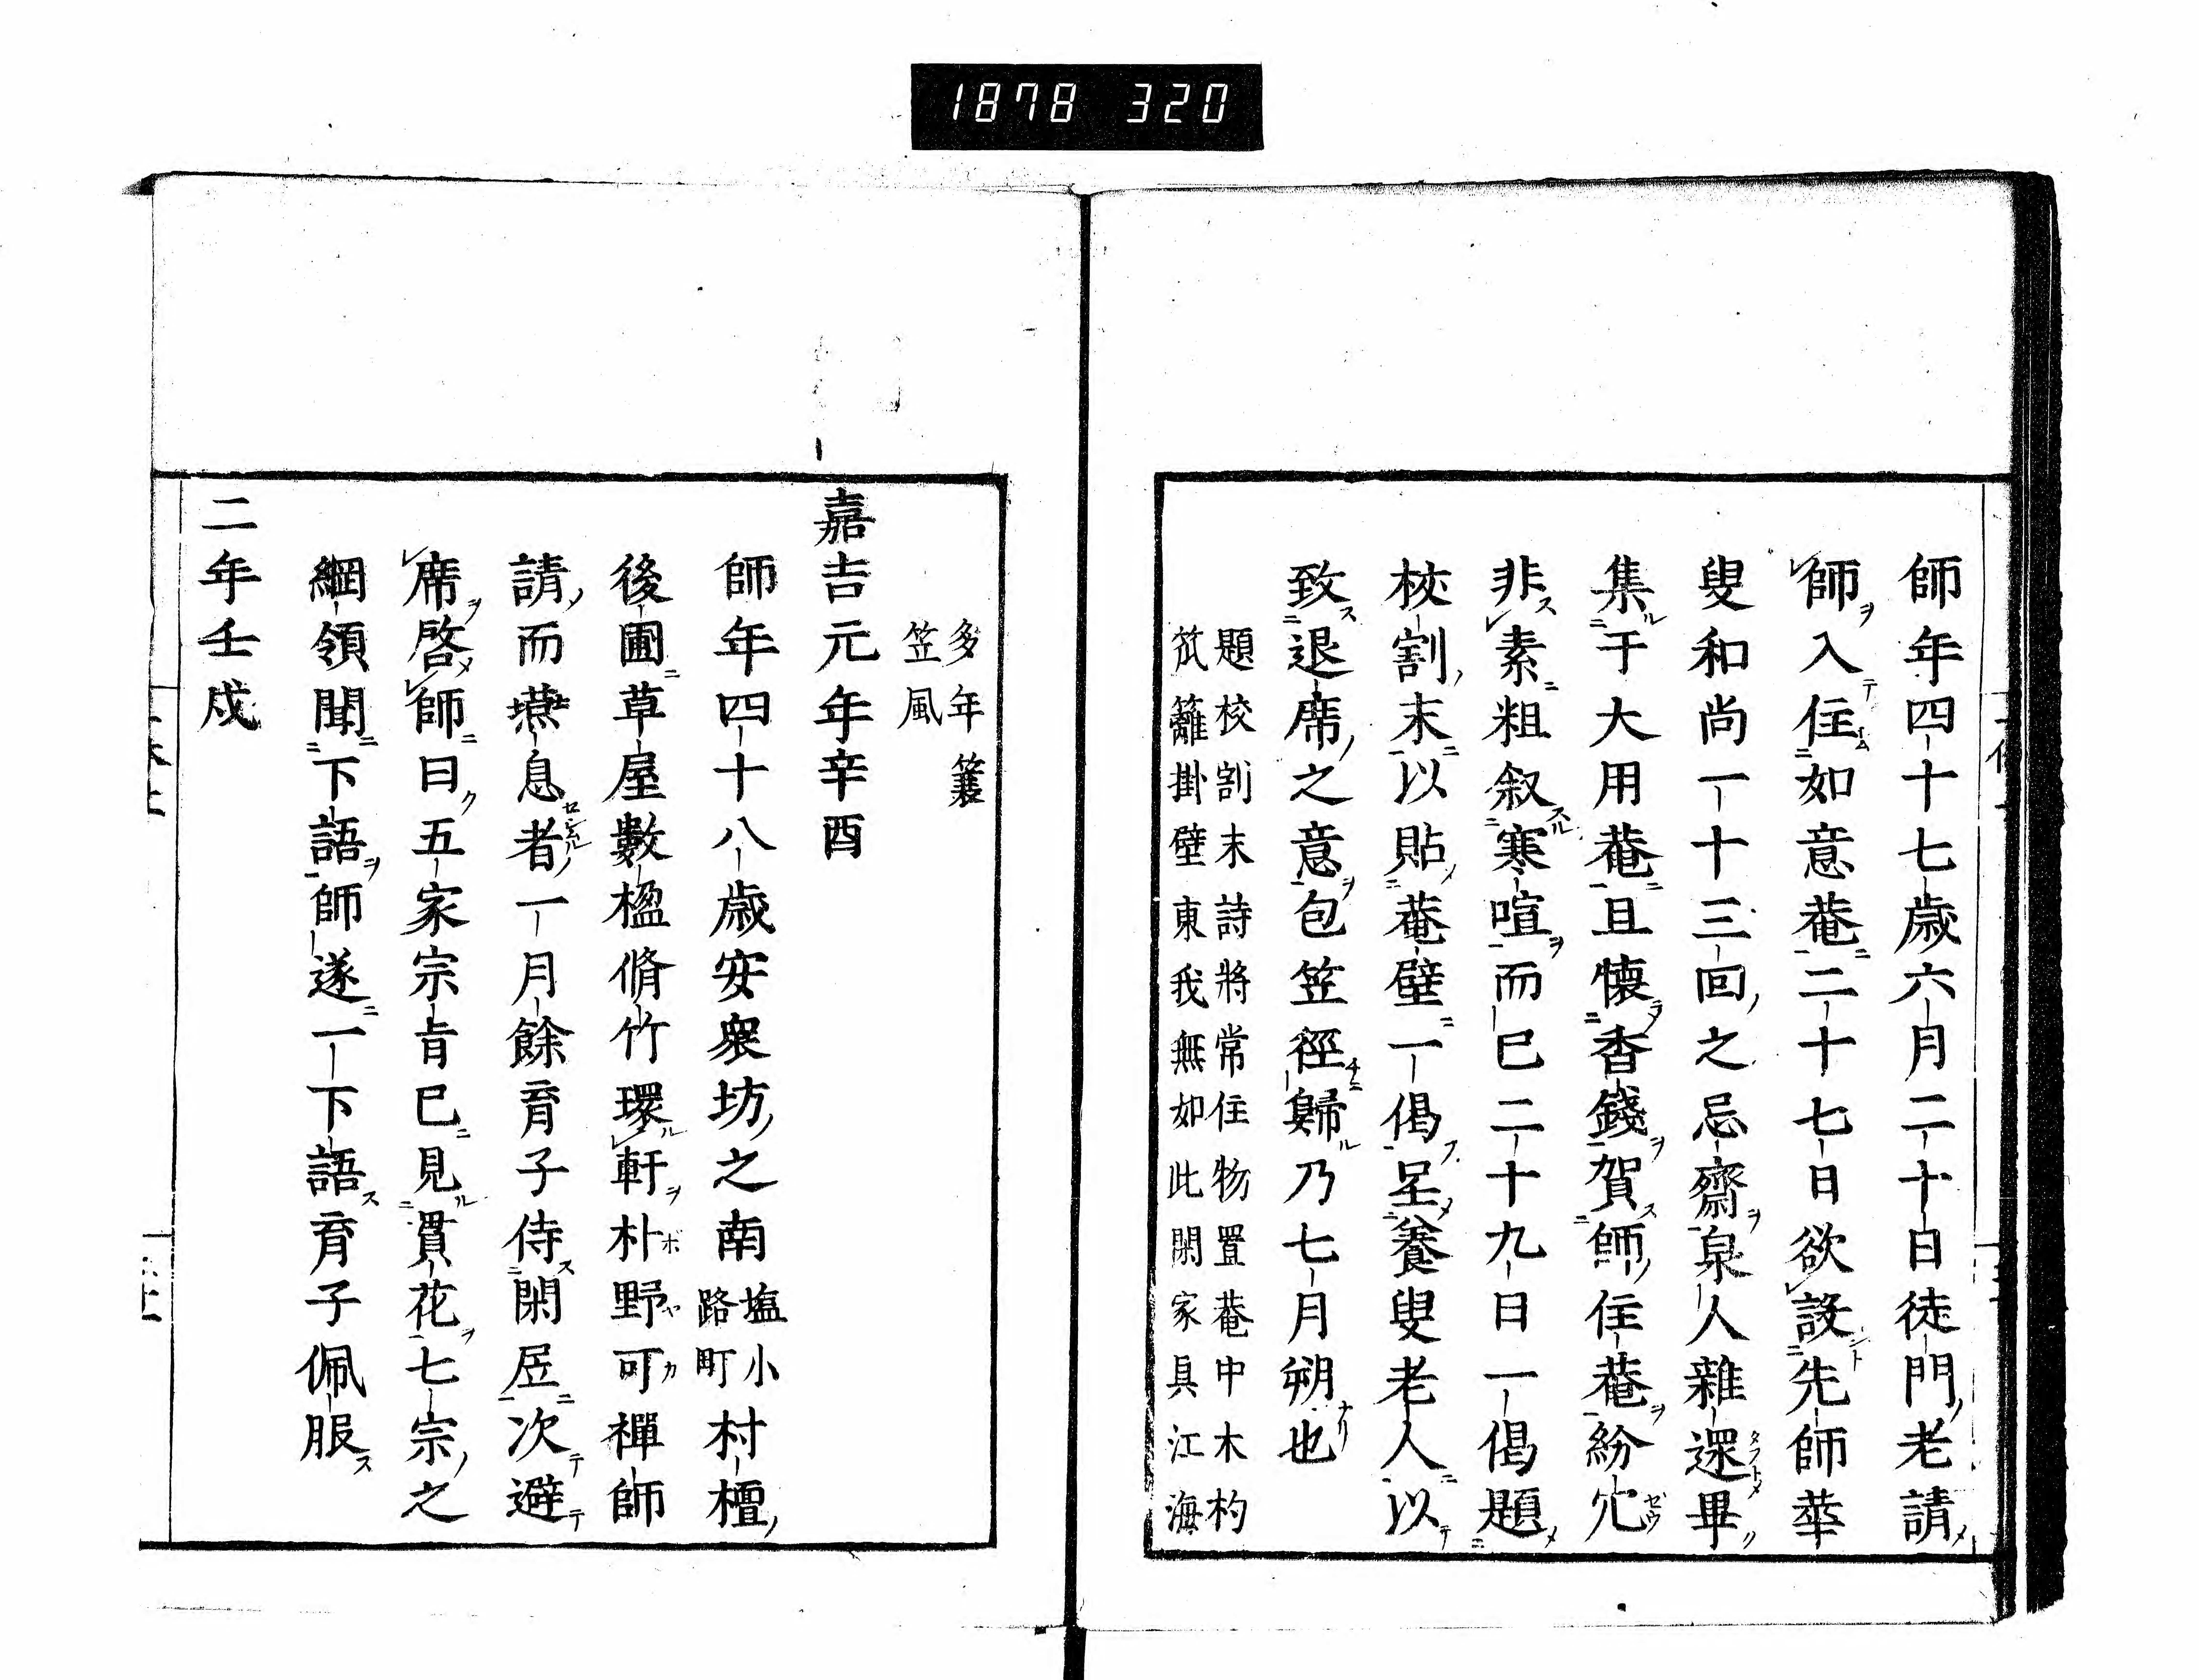 1878 320
師年四十七歳六月二十日徒門老請
師入住如意菴二十七日欲設先師華
叟和尚一十三回之忌齋泉人雜還畢
集于大用菴且懷香錢賀師住菴紛冗
非素粗叙寒喧而已二十九日一偈題
校割末以貼菴壁一偈呈養叟老人以
致退席之意包笠徑歸乃七月朔也
題校割末詩將常住物置菴中木杓
笊籬掛壁東我無如此閑家具江海
多年簑
笠風
嘉吉元年辛酉
師年四十八歳安衆坊之南塩小路町村檀
後圃草屋數楹脩竹環軒朴野可禪師
請而燕息者一月餘育子侍閑居次避
席啓師曰五家宗旨已見貫花七宗之
綱領聞下語師遂一一下語育子佩服
二年壬戌